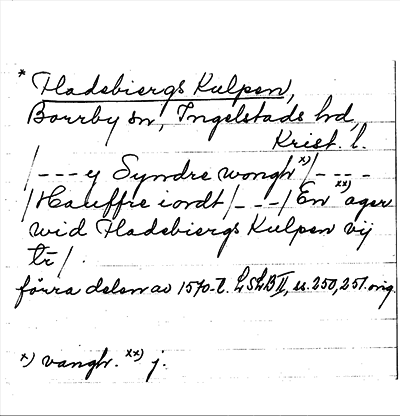 * Hladebiergs Kulpen,
Borrby sn, Ingelstads hd,
Krist. l.
/--- y Syndre wongh x)/----
/Hauffre iordt/---/En xx) ager
wid Hladebiergs Kulpen vij
tr̄/.
förra delen av 1570-t. LSLB II, ss. 250, 251. orig.
x) vangh. xx) j.